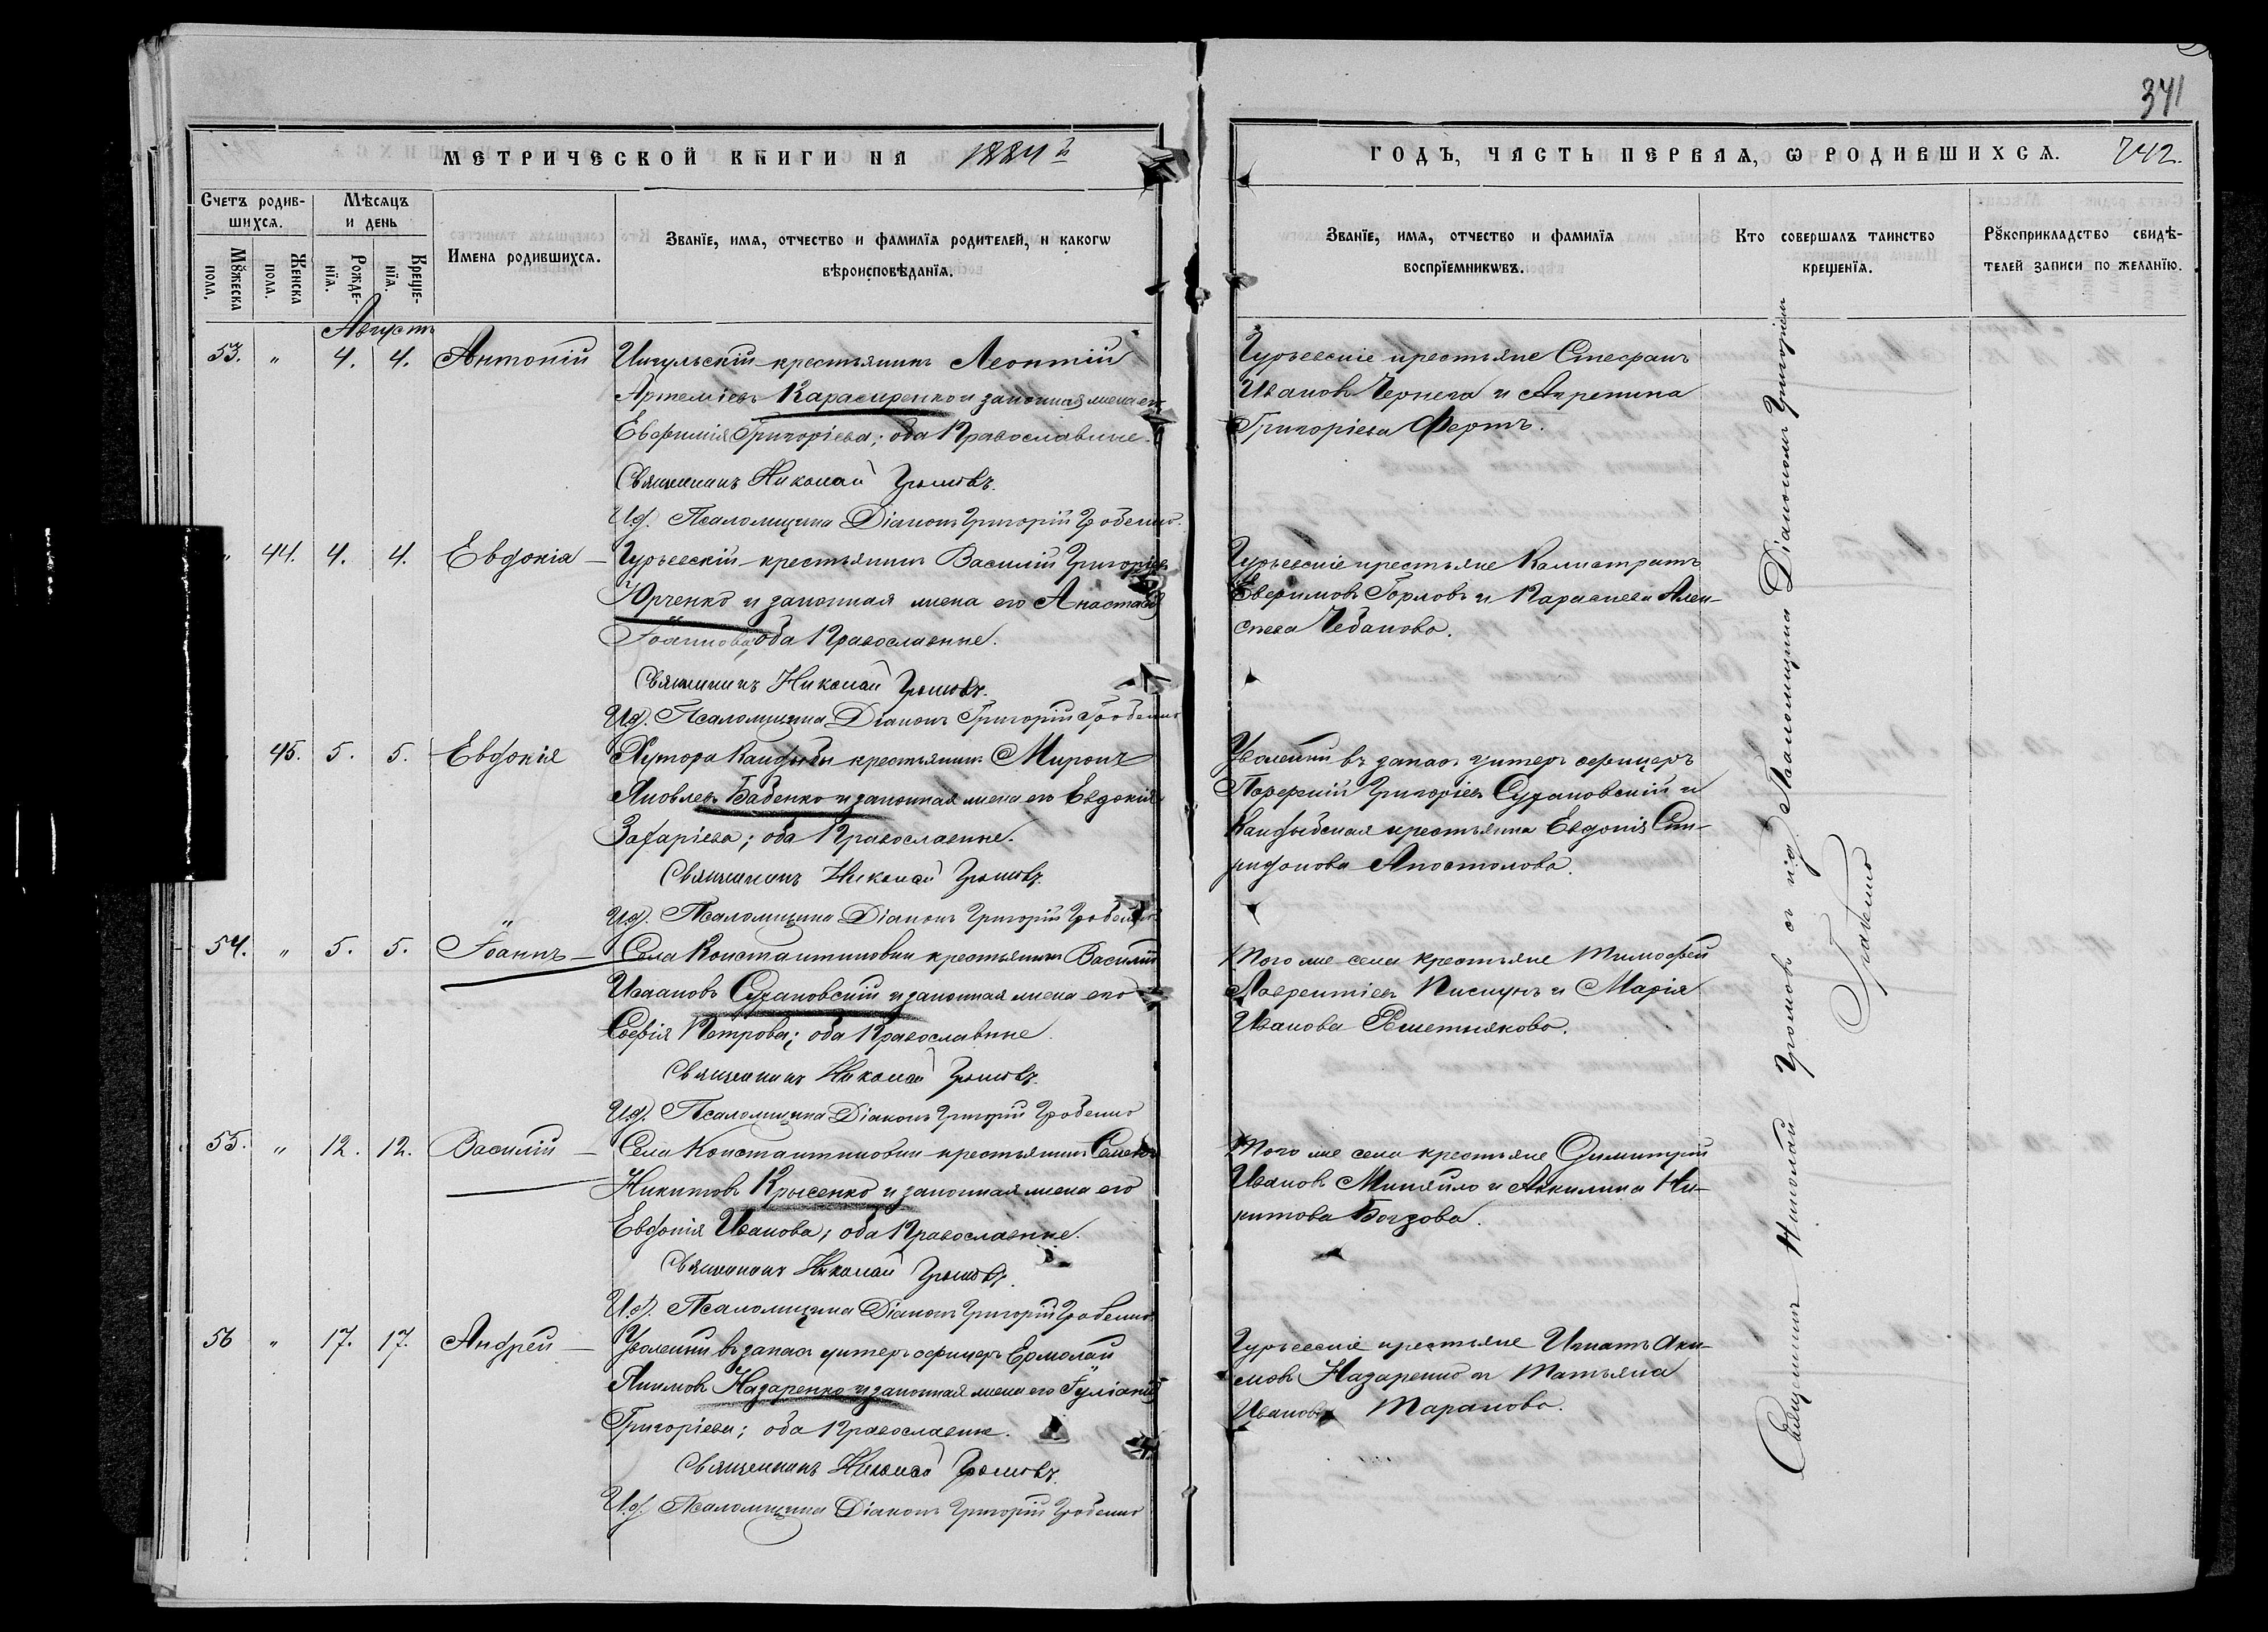 341
МЕТРИЧЕСКОЙ КНИГИ НА 1884й
ГОДЪ, ЧАСТЬ ПЕРВАЯ, Ѡ РОДИВШИХСѦ. 742.
Счетъ родив-
шихсѧ.
Мѣсѧцъ
и день
Мꙋжеска
пола.
Женска
пола.
Рожде-
нїѧ.
Креще-
нїѧ.
Имена родившихсѧ.
Званїе, имѧ, отчество и фамилїѧ родителей, и какогѡ
вѣроисповѣданїѧ.
Званїе, имѧ, отчество и фамилїѧ
воспрїемникѡвъ.
Кто совершалъ таинство
крещенїѧ.
Рꙋкоприкладство свидѣ-
телей записи по желанїю.
Августъ
53. " 4. 4. Антоній
Ингульскій крестьянинъ Леонтій
Артеміевъ и законная жена его
Евфимія Григоріева; оба Православные.
Священникъ Николай Громовъ.
И.д. Псаломщика Діаконъ Григорій
Гурьевскіе крестьяне Стефанъ
Ивановъ Чернега и Агрепина
Григоріева Фертъ.
" 44. 4. 4. Евдокіа —
Гурьевскій крестьянинъ Василій Григорьевъ
Юрченко и законная жена его Анастасія
Іоаннова; оба Православные.
Священникъ Николай Громовъ.
И.д. Псаломщика Діаконъ Григорій
Гурьевскіе крестьяне Калистратъ
Евфимовъ Горловъ и Параскева Алек-
сѣева Чебанова.
45. 5. 5. Евдокія
Хутора Кандыбы крестьянинъ Миронъ
Яковлевъ Бабенко и законная жена его Евдокія
Захаріева; оба Православные.
Священникъ Николай Громовъ.
И.д. Псаломщика Діаконъ Григорій
Уволенный въ запасъ унтеръ офицеръ
Григоріевъ Сухановскій и
Кандыбская крестьянка Евдокія Спи-
ридонова Апостолова.
54. " 5. 5. Іоаннъ —
Села Константиновки крестьянинъ Василій
Ивановъ Сухановскій и законная жена его
Софія Петрова; оба Православные.
Священникъ Николай Громовъ.
И.д. Псаломщика Діаконъ Григорій
Того же села крестьяне Тимофей
Лаврентіевъ Пискунъ и Марія
Иванова Решетнякова.
55. " 12. 12. Василій —
Села Константиновки крестьянинъ Семенъ
Никитовъ Крысенко и законная жена его
Евдокія Иванова; оба Православные.
Священникъ Николай Громовъ.
И.д. Псаломщика Діаконъ Григорій
Того же села крестьяне Димитрій
Ивановъ Миняйло и Акилина Ни-
китова
56 " 17. 17. Андрей —
Уволенный въ запасъ унтеръ офицеръ Ермолай
Акимовъ Назаренко и законная жена его Іуліанія
Григоріева; оба Православные.
Священникъ Николай Громовъ.
И.д. Псаломщика Діаконъ Григорій
Гурьевскіе крестьяне Игнатъ Аки-
мовъ Назаренко и Татьяна
Иванова Таранова.
Священникъ Николай Громовъ съ и.д. Псаломщика Діакономъ Григоріемъ